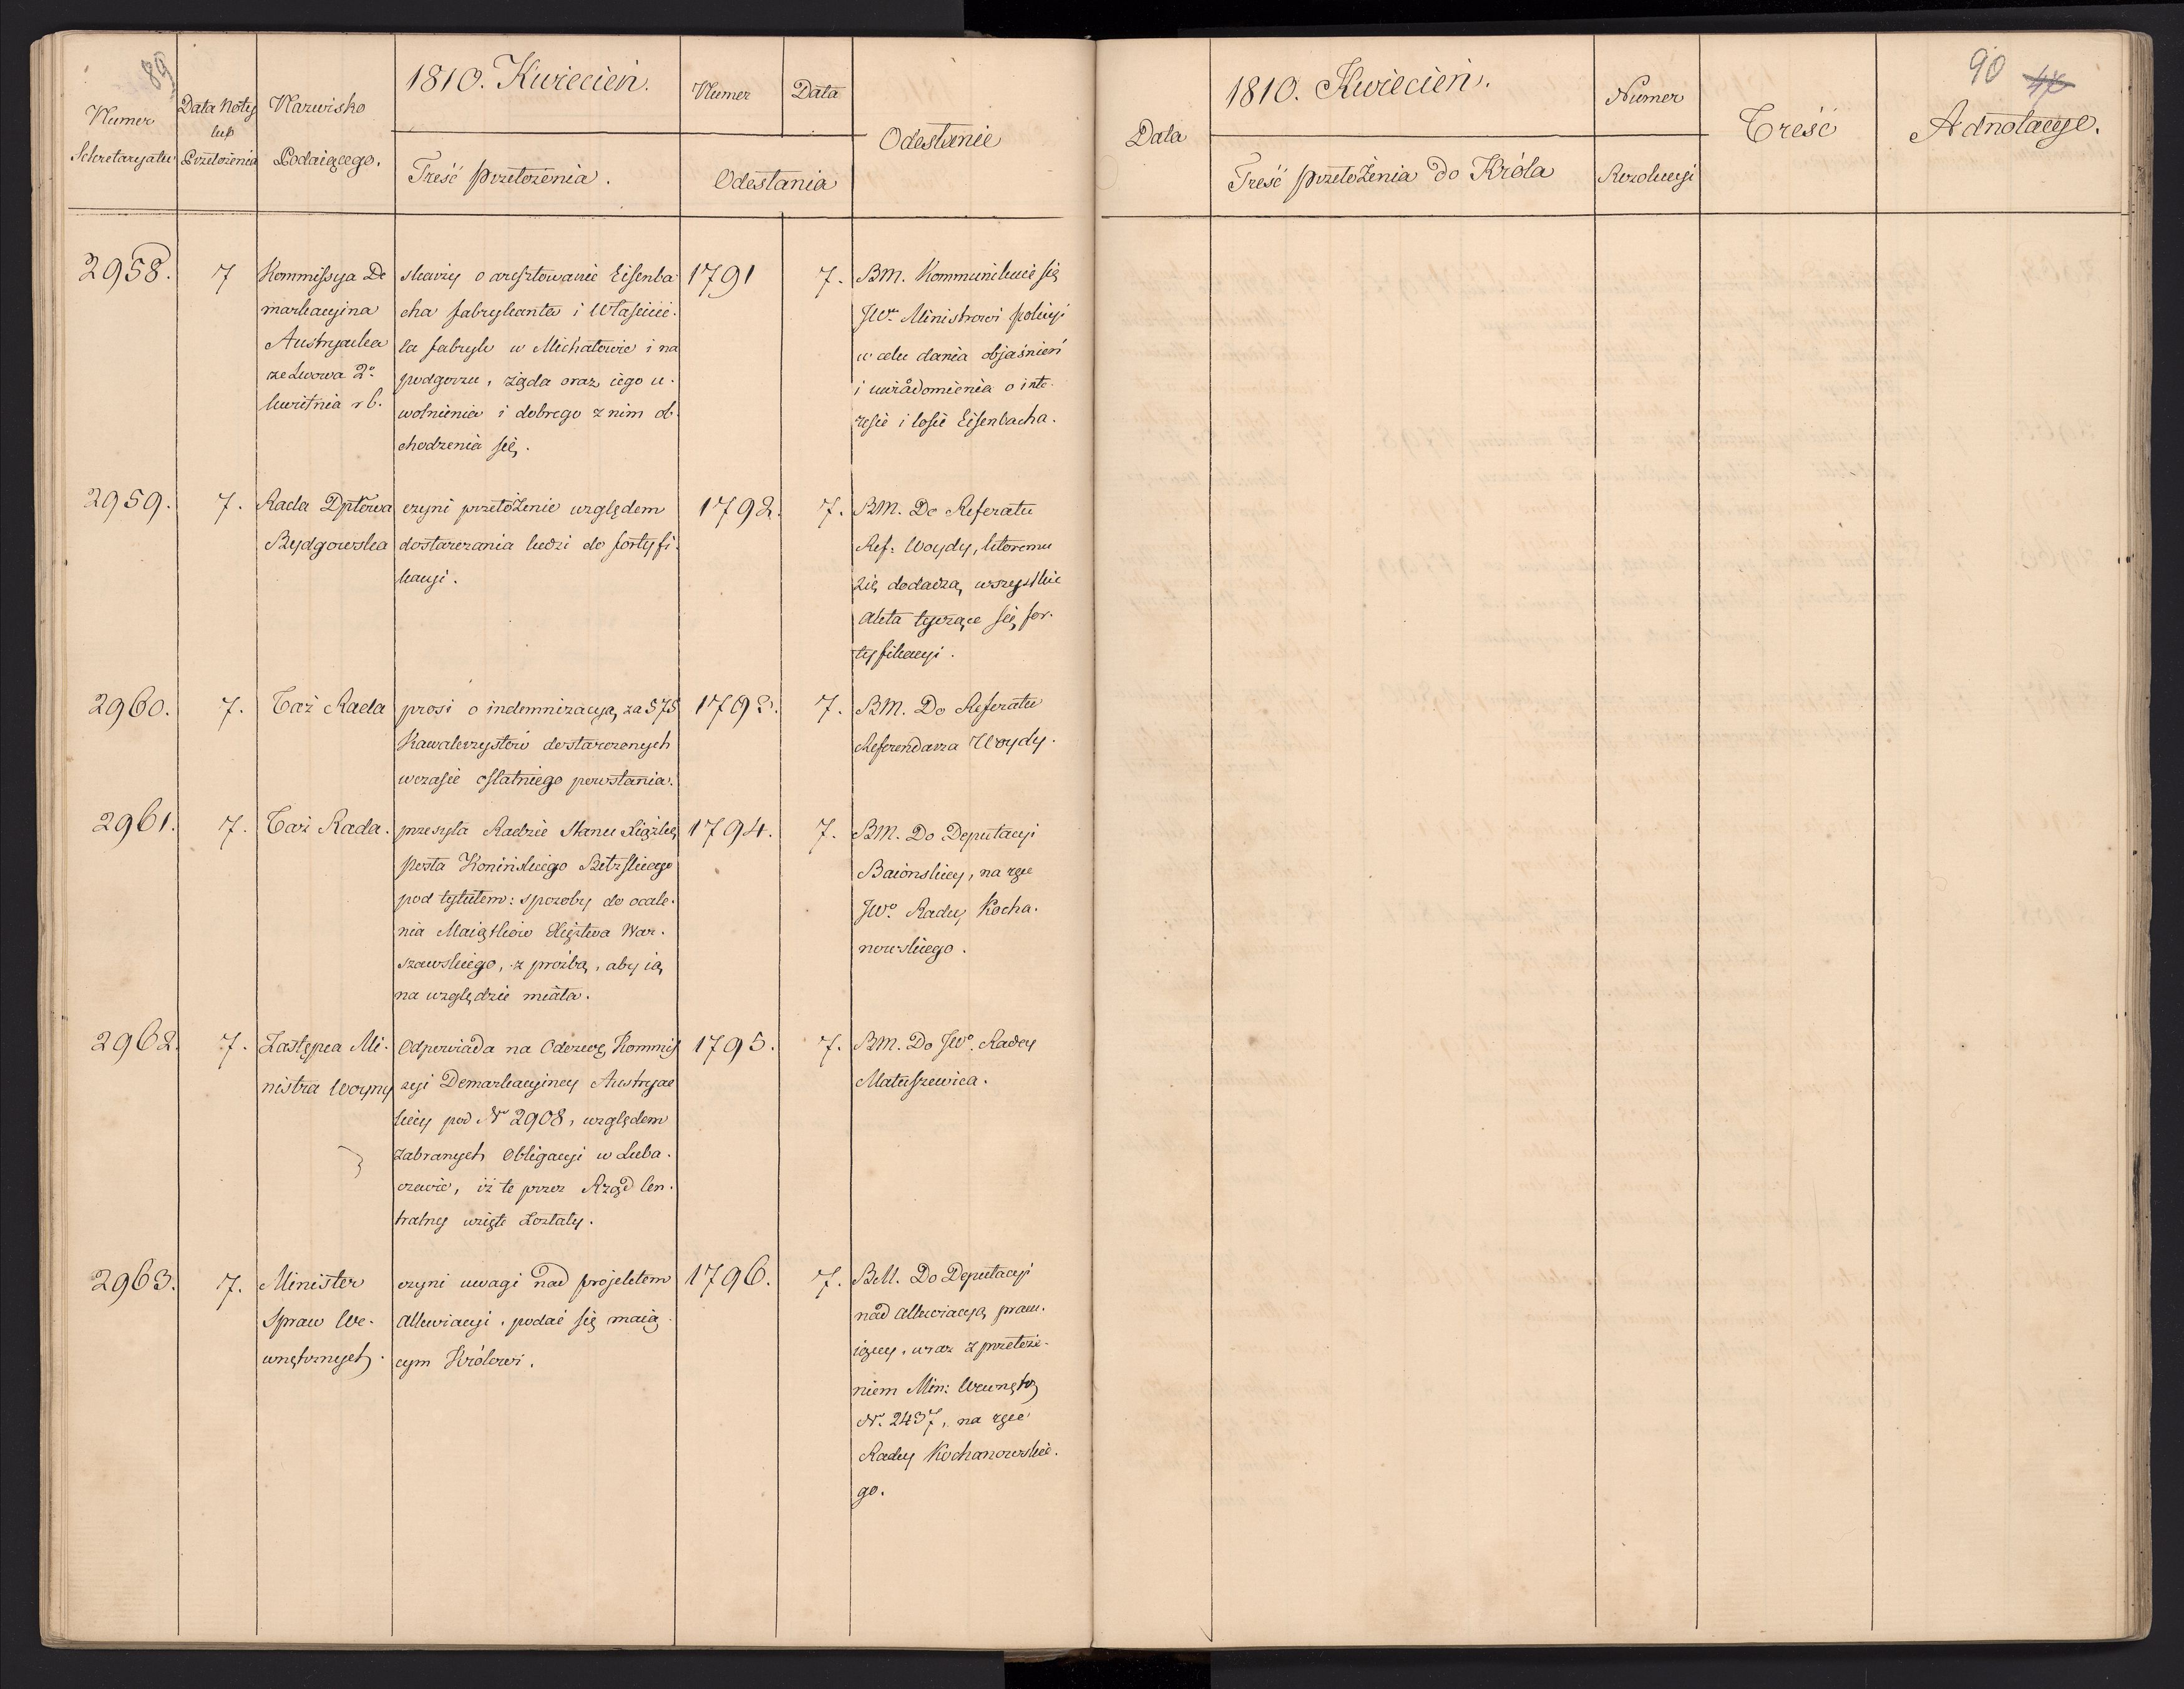 89
1810. Kwiecień.
Numer
Sekretaryatu
Data Noty
lub
Przełożenia
Nazwisko
Podaiącego.
Treść przełożenia.
Numer
Data
Odesłania
Odesłanie
2958.
7
Kommissya De
markacyina
Austryacka
ze Lwowa 2º
kwietnia r b.
skarży o aresztowanie Eisenba
cha fabrykanta i Właścicie-
la fabryk w Michałowie i na
podgorzu, żąda oraz iego u-
wolnienia i dobrego z nim ob-
chodzenia się.
1791
7.
BM. Kommunikuie się
JWº Ministrowi policyi
w celu dania objaśnień
i uwiadomienia o inte-
resie i losie Eisenbacha.
2959.
7.
Rada Dptowa
Bydgowska
czyni przełożenie względem
dostarczania ludzi do fortyfi-
kacyi.
1792.
7.
BM. Do Referatu
Ref: Woydy, ktoremu
się dodadzą wszystkie
akta tyczące się for-
tyfikacyi.
2960.
7.
Taż Rada
prosi o indemnizacyą za 575
Kawalerzystów dostarczonych
wczasie ostatniego powstania.
1793.
7.
BM. Do Referatu
Referendarza Woydy.
2961.
7.
Taż Rada.
przesyła Radzie Stanu Xiążkę
posła Konińskiego
pod tytułem: sposoby do ocale-
nia Maiątków Xięztwa War-
szawskiego, z prożbą, aby ią
na względzie miała.
1794.
7.
BM. Do Deputacyi
Baiońskiey, na ręce
JWº Radcy Kocha-
nowskiego.
2962.
7.
Zastępca Mi-
nistra Woyny
Odpowiada na Odezwę Kommis
syi Demarkacyiney Austryac
kiey pod Nº 2908, względem
zabranych Obligacyi w Luba-
czowie, iż te przez Rząd Cen-
tralny wzięte zostały.
1795.
7.
BM. Do JWº Radcy
Matuszewica.
2963.
7.
Minister
Spraw We-
wnętrznych.
czyni uwagi nad projektem
alluwiacyi, podać się maią-
cym Królowi.
1796.
7.
BM. Do Deputacyi
nad alluwiacyą pracu-
iącey, wraz z przełoże-
niem Min: Wewnętrz
Nº 2437, na ręce
Radcy Kochanowskie-
go.
90
1810. Kwiecień.
Data
Treść przełożenia do Króla
Numer
Rezolucyi
Treść
Adnotacye.